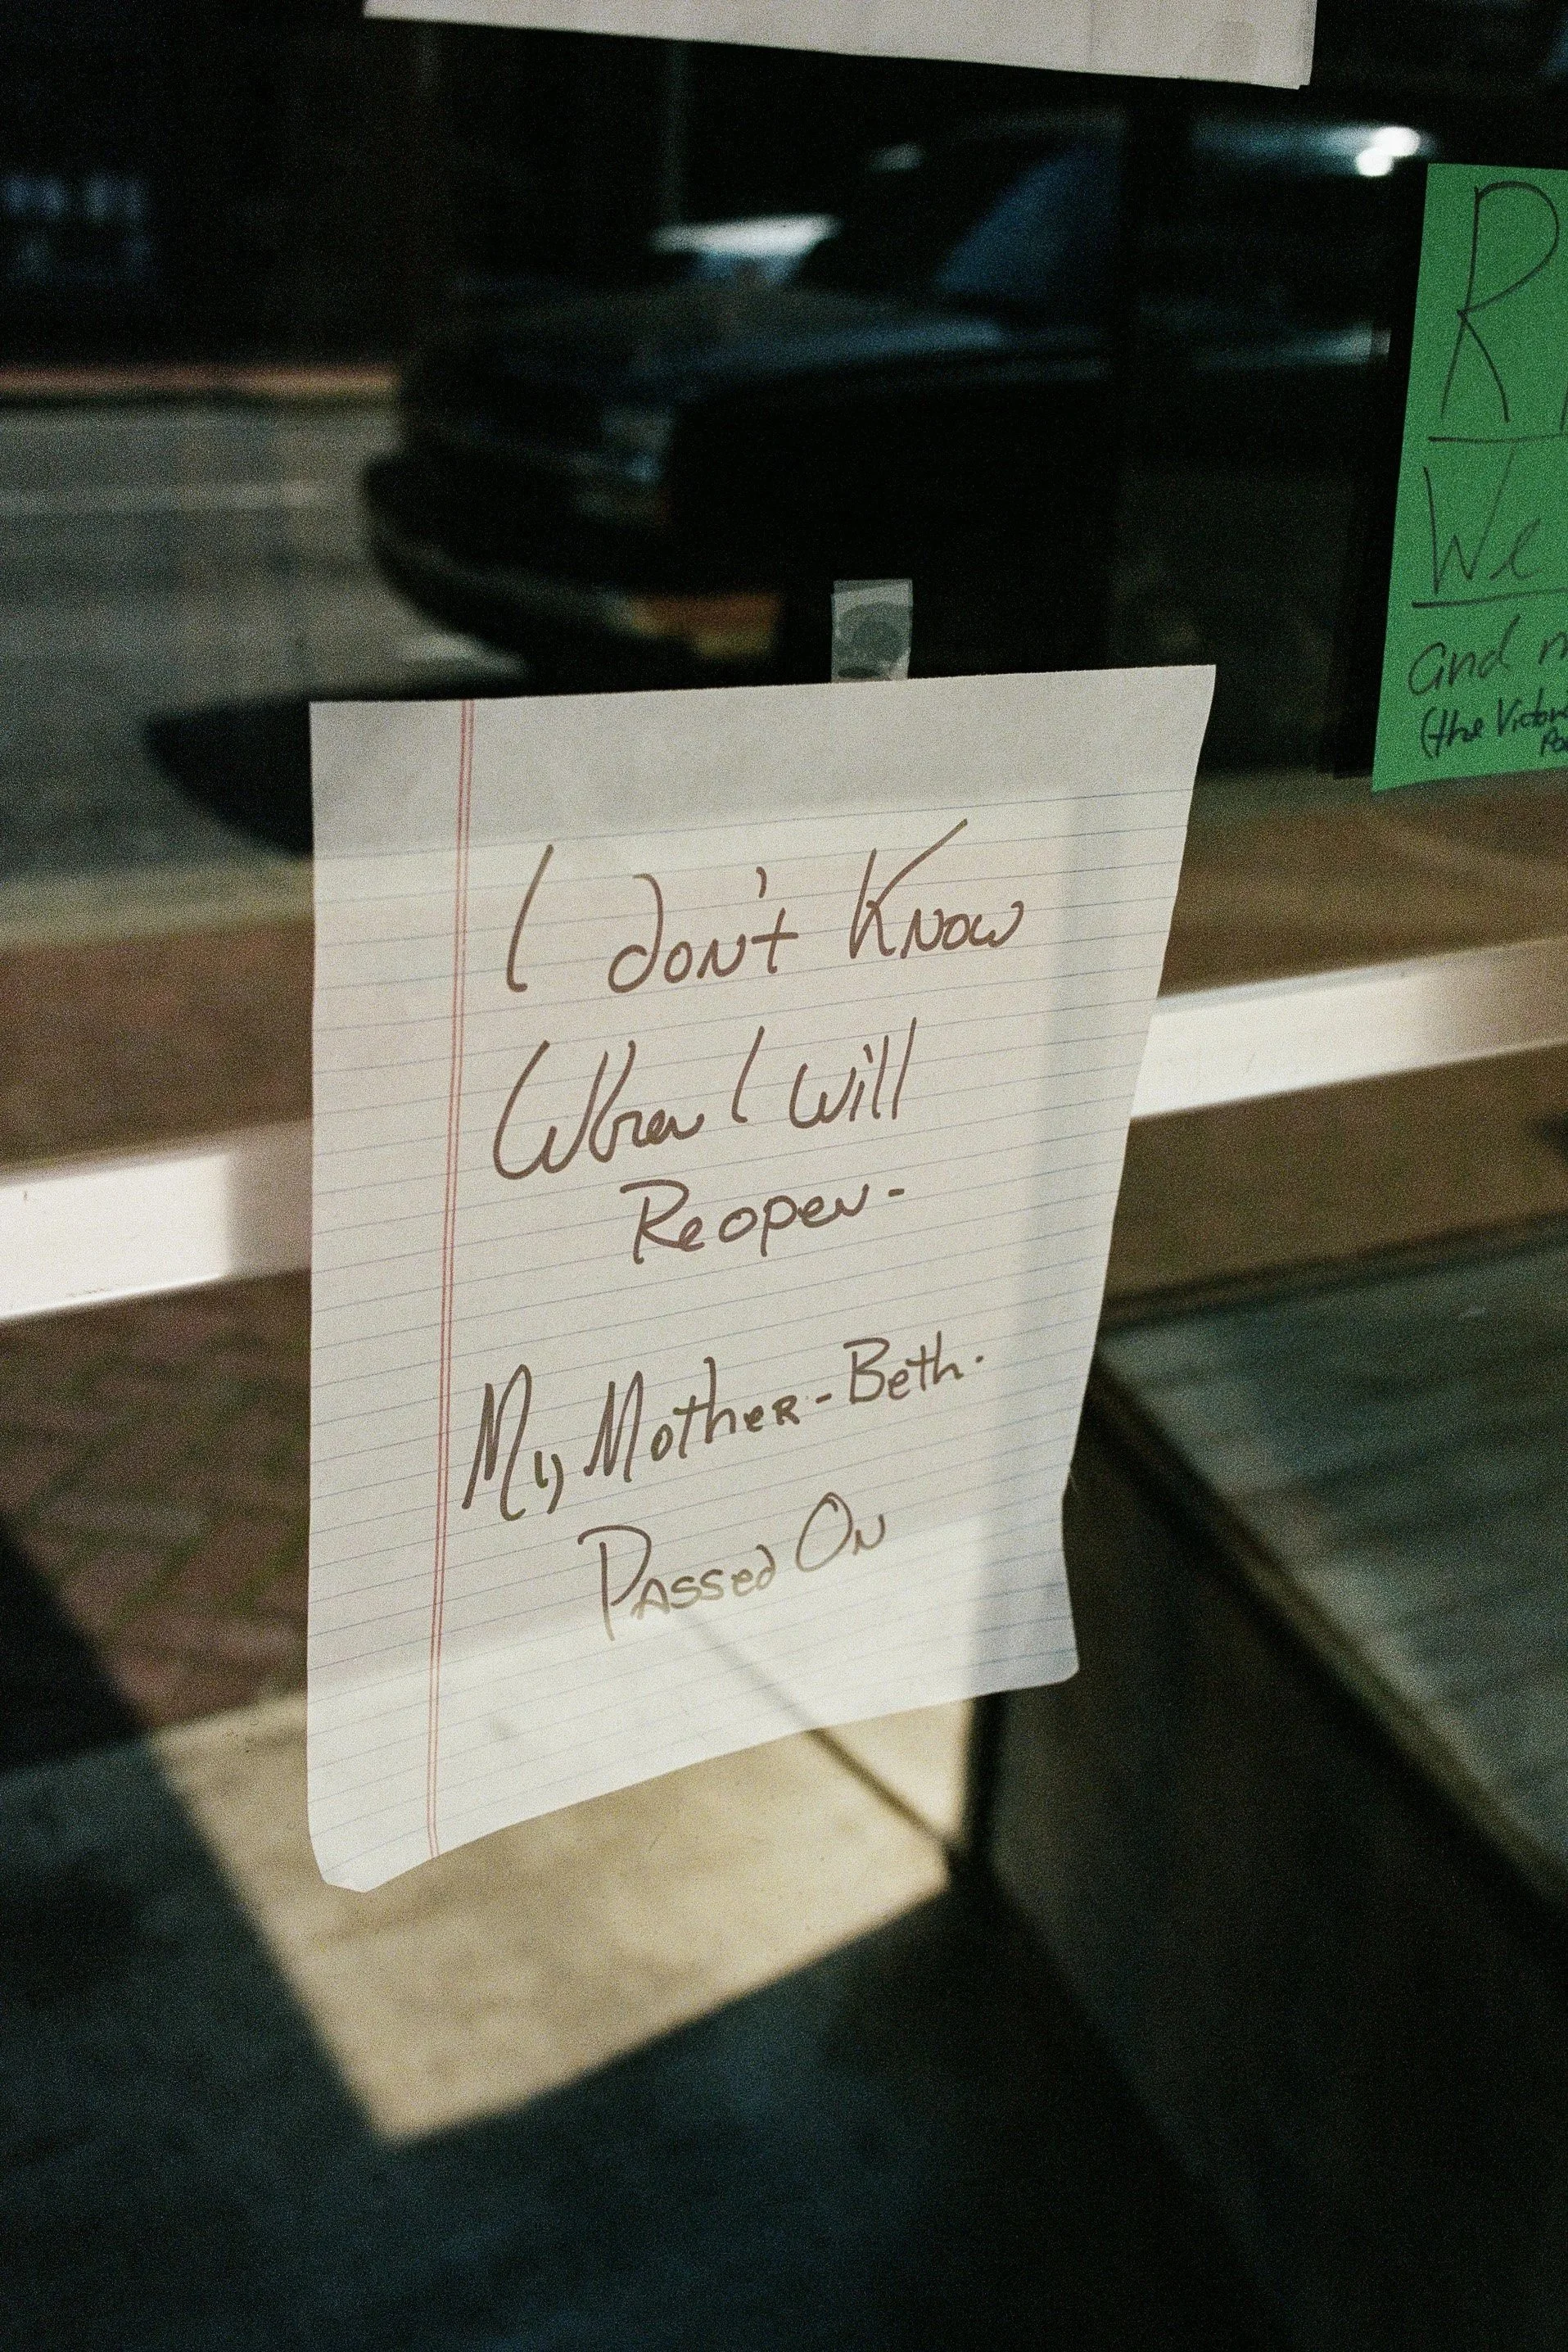 I don't Know
When I Will
Reopen-
My Mother-Beth.
Passed On
R
We
and
(the Victor